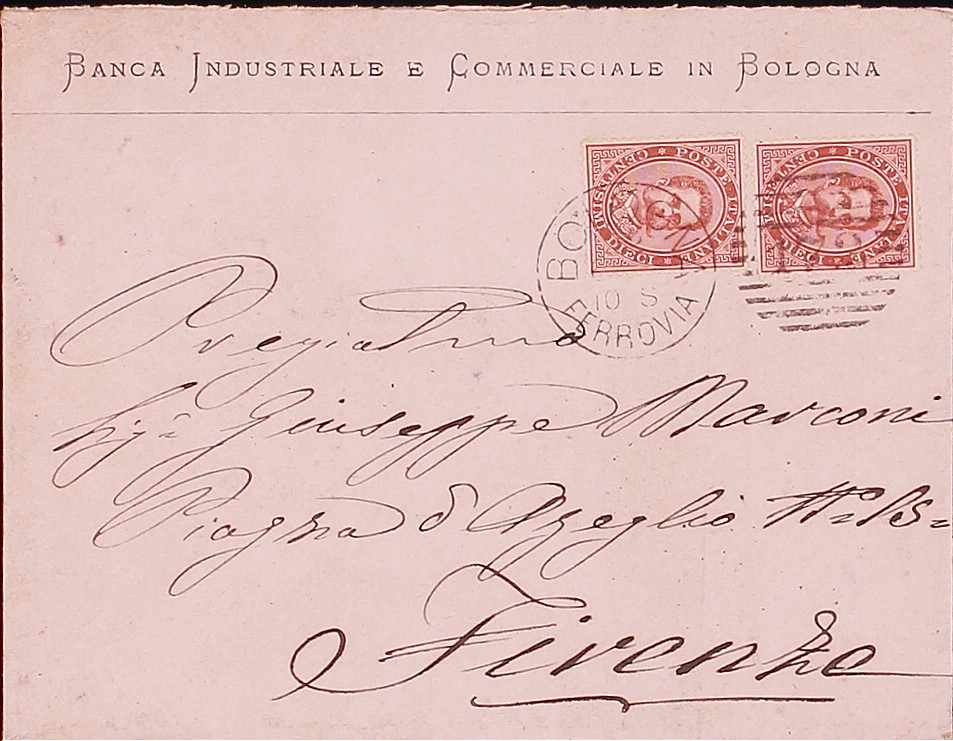 BANCA INDUSTRIALE E COMMERCIALE IN BOLOGNA
CENTESIMI DIECI * POSTE ITALIANE *
CENTESIMI DIECI * POSTE ITALIANE *
BOLOGNA
10 S
FERROVIA
Pregiatmo
Sigr Giuseppe Marconi
Piazza d'Azeglio
Firenze